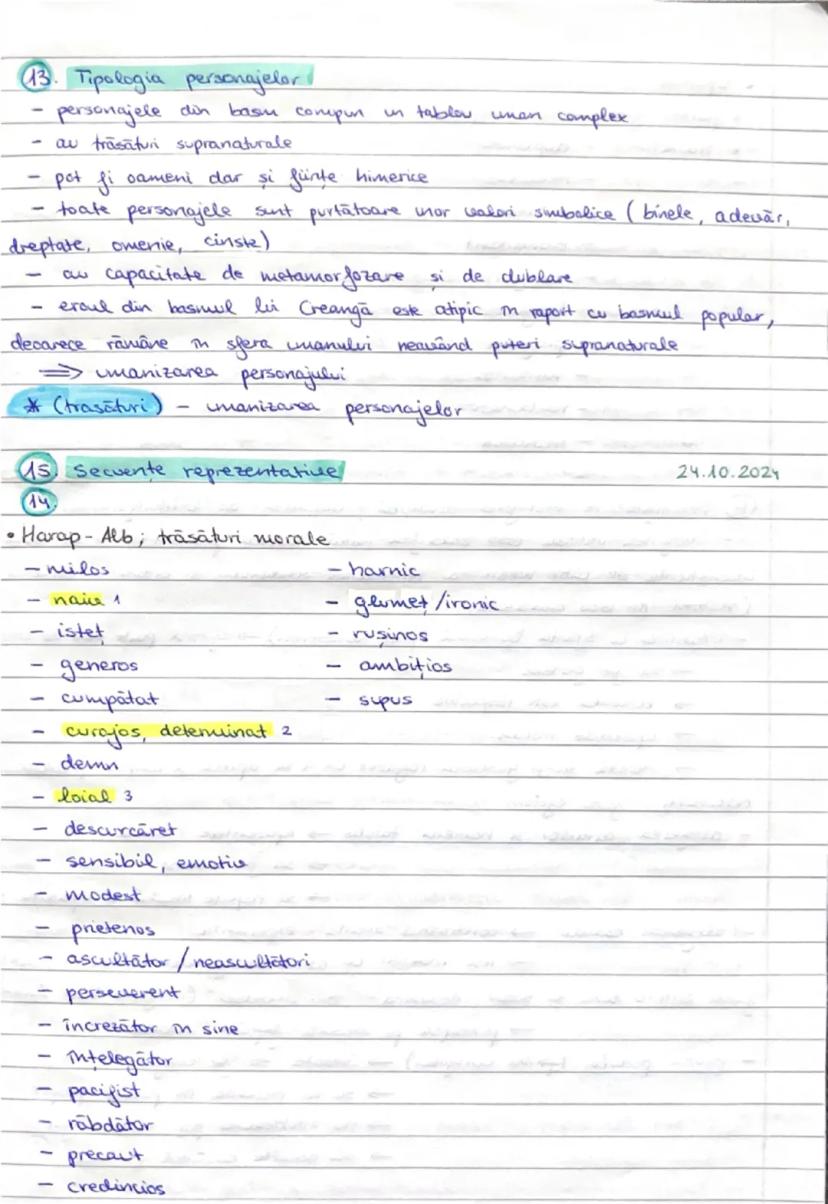 13. Tipologia personajelor
- personajele din basm compun un tablou uman complex
- au trăsături supranaturale
- pot fi oameni dar și ființe himerice
- toate personajele sunt purtătoare unor valori simbolice (binele, adevăr,
dreptate, omenie, cinste)
- au capacitate de metamorfozare și de dublare
- eroul din basmul lui Creangă este atipic în raport cu basmul popular,
deoarece rămâne în sfera umanului neavând puteri supranaturale
⟹ umanizarea personajului
* (trasături) - umanizarea personajelor
15 Secvențe reprezentative 24.10.2024
14.
• Harap-Alb; trăsături morale
- milos - harnic
- naiv 1 - glumeț/ironic
- isteț - rușinos
- generos - ambițios
- cumpătat - supus
- curajos, determinat 2
- demn
- loial 3
- descurcăreț
- sensibil, emotiv
- modest
- prietenos
- ascultător / neascultători
- perseverent
- încrezător în sine
- înțelegător
- pacifist
- răbdător
- precaut
- credincios